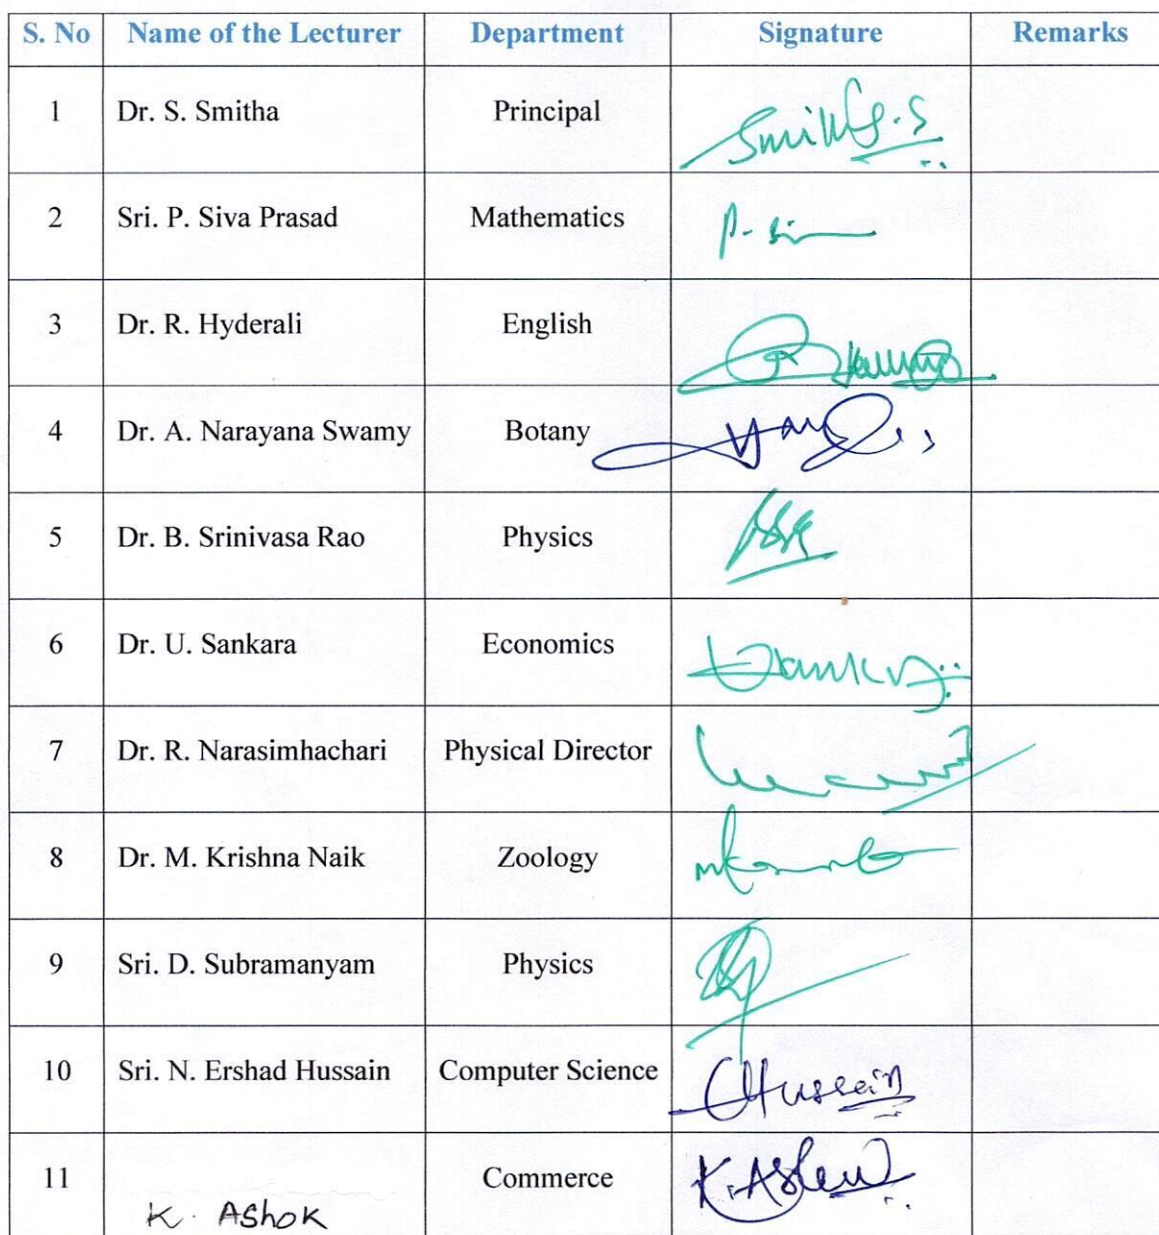 S. No Name of the Lecturer Department Signature Remarks
1 Dr. S. Smitha Principal Smitha.S
2 Sri. P. Siva Prasad Mathematics
3 Dr. R. Hyderali English
4 Dr. A. Narayana Swamy Botany
5 Dr. B. Srinivasa Rao Physics
6 Dr. U. Sankara Economics
7 Dr. R. Narasimhachari Physical Director
8 Dr. M. Krishna Naik Zoology
9 Sri. D. Subramanyam Physics
10 Sri. N. Ershad Hussain Computer Science Hussain
11 K. AShoK Commerce K. Ashok